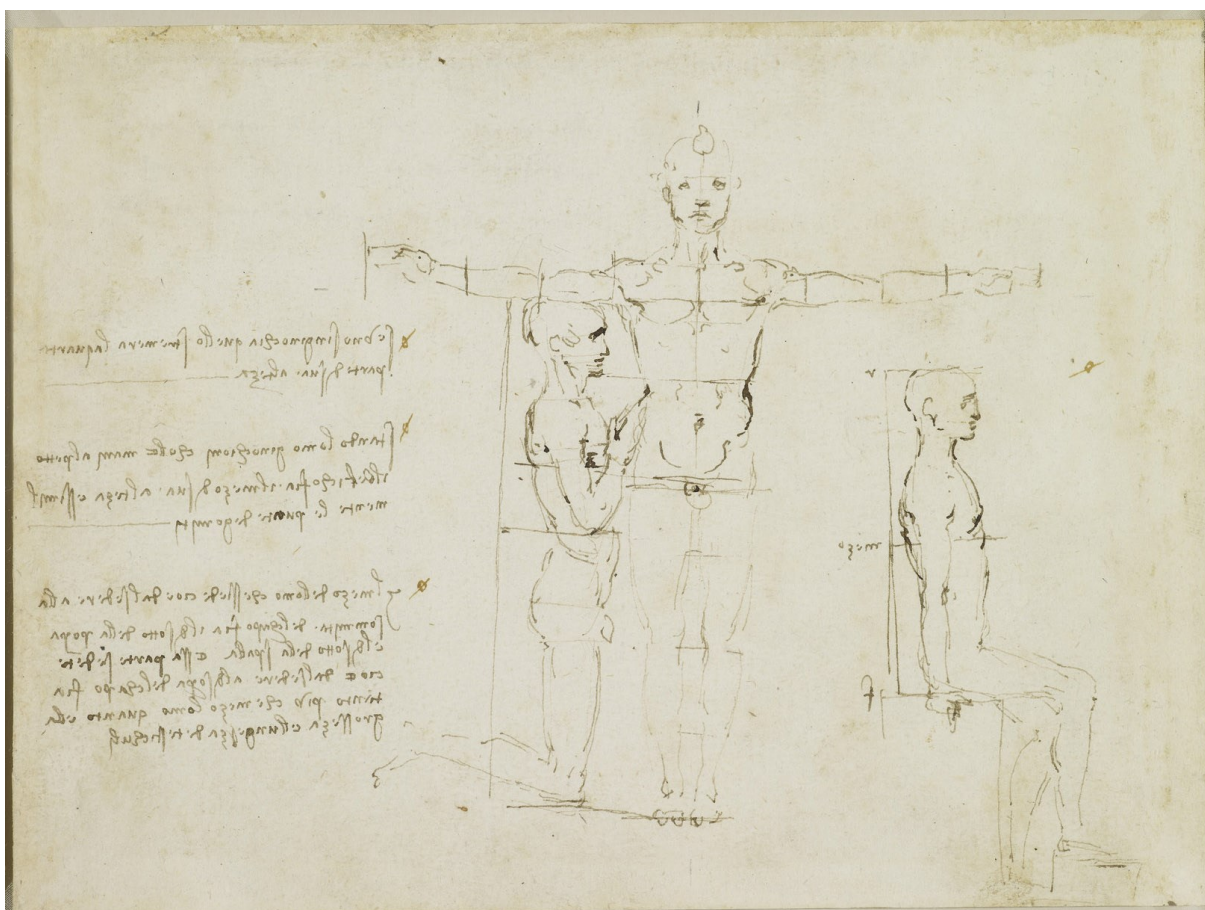 se lomo singinochia quello scemera la quarta
parte di sua alteza
stando lomo ginochioni cholle mani al petto
il bellicho fia il mezo di sua alteza e ssimil
mente le punte de gomiti
il mezo del lomo che ssiede cioe dal sedere alla
sommita del chapo fia il di sotto della poppa
e l di sotto della spalla essa parte sedente
cioe dal sedere al di sopra del chapo fia
tanto piu che mezo lomo quanto e lla
grosseza e llungheza de testichuli
r
mezo
f